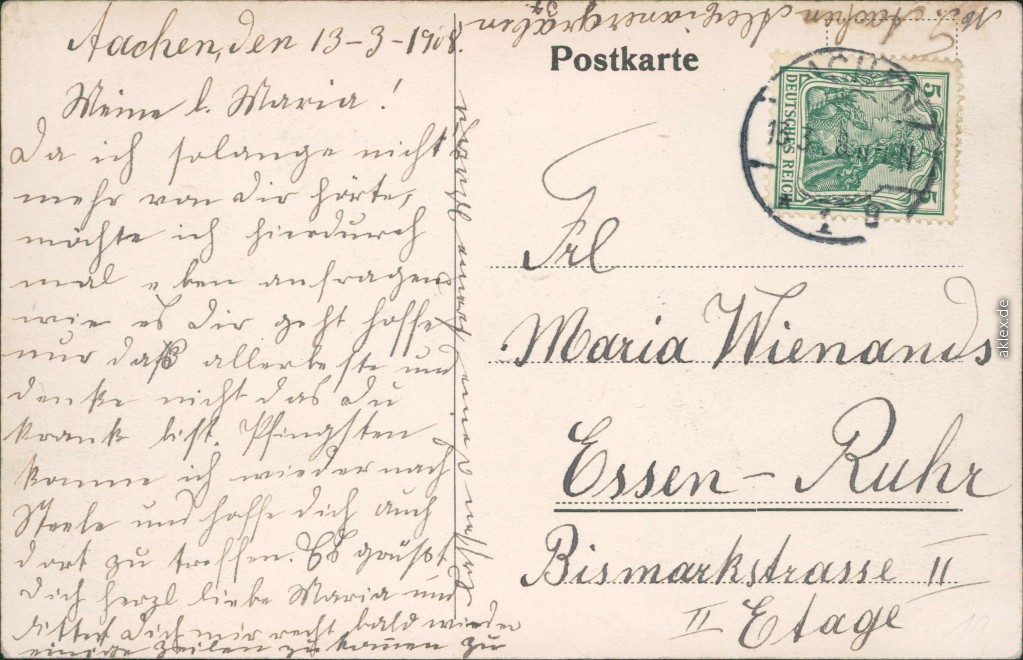 Aachen, den 13-3-1908.
Meine l. Maria!
Da ich solange nicht
mehr von Dir hörte,
möchte ich hierdurch
mal eben anfragen
wie es Dir geht hoffe
nur daß allerbeste und
denke nicht das Du
krank bist. Pfingsten
komme ich wieder nach
Steele und hoffe Dich auch
dort zu treffen. Es grüßt
Dich herzl liebe Maria und
bittet Dich mir recht bald wieder
einige Zeilen zu kommen zu
Aachen Alexianergraben
37
Postkarte
DEUTSCHES REICH
5
5
AACHEN
13.3
1 g
Frl
Maria Wienands
Essen-Ruhr
Bismarkstrasse 11
II Etage
aklex.de